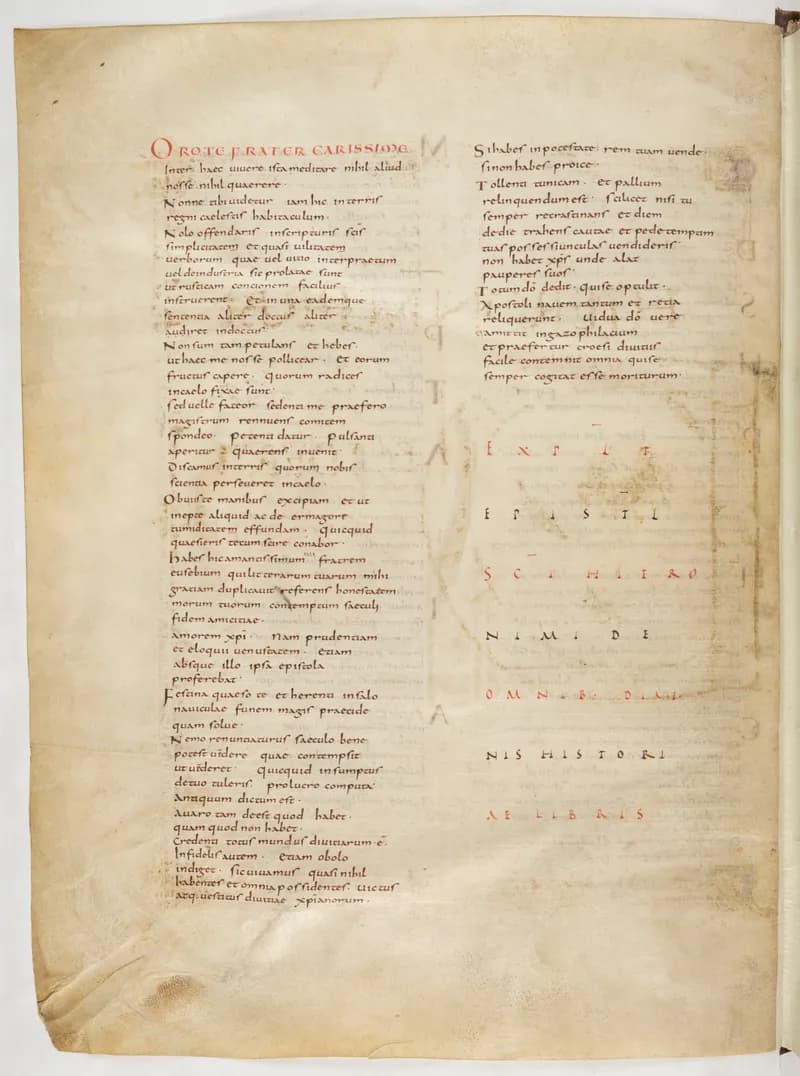 ORO TE FRATER CARISSIME
Inter haec uiuere ista meditare nihil aliud
nosse nihil quaerere·
Nonne tibi uidetur iam hic interris
regni caelestis habitaculum·
Nolo offendaris inscripturis scis
simplicitatem et quasi uilitatem
uerborum quae uel uitio interpraetum
uel deindustria sic prolatae sunt
ut rusticam contionem facilius
instruerent· Et in una eademque
sententia aliter doctus aliter
audiret indoctus·
Non sum tam petulans et hebes
ut haec me nosse pollicear· et eorum
fructus capere· quorum radices
incaelo fixae sunt·
sed uelle fateor sedenti me praefero
magistrum rennuens comitem
spondeo· petenti datur· pulsanti
aperitur quaerens inuenit·
Discamus interris quorum nobis
scientia perseueret incaelo·
Obuiste manibus excipiam et ut
inepte aliquid ac de ermagore
tumiditatem effundam· quicquid
quaesieris tecum scire conabor·
Habes hic amantissimum fratrem
eusebium qui litterarum tuarum mihi
gratiam duplicauit referens honestatem
morum tuorum contemptum saeculi
fidem amicitiae·
amorem xpi· Nam prudentiam
et eloquii uenustatem· etiam
absque illo ipsa epistola
proferebat·
Festina quaeso te et herenti insalo
nauiculae funem magis praecide
quam solue·
Nemo renuntiaturus saeculo bene
potest uidere quae contempsit
ut uideret· quicquid insumptus
detuo tuleris pro lucro computa·
Antiquum dictum est·
Auaro tam deest quod habet·
quam quod non habet·
Credenti totus mundus diuitiarum· ē·
Infidelis autem· etiam obolo
indiget· sic uiuamus quasi nihil
habentes et omnia possidentes· uictus
atq· uestitus diuitiae xpianorum·
Si habes in potestate· rem tuam uende·
si non habes proice·
Tollenti tunicam· et pallium
relinquendum est· scilicet nisi tu
semper recrastinans et diem
dedie trahens caute et pedetemptim
tuas possessiunculas uendideris·
non habet xps unde alat
pauperes suos·
Totum dō dedit· qui se optulit·
Apostoli nauem tantum et retia
reliquerunt· Uidua dō uere
amittit ingazophilacium
et praefertur croesi diuitiis
facile contemnit omnia qui se
semper cogitat esse moriturum·
EXPLIT
EPISTL
SCI HIERO
NIMI DE
OMNIB· DIUI
NIS HISTORI
AE LIBRIS